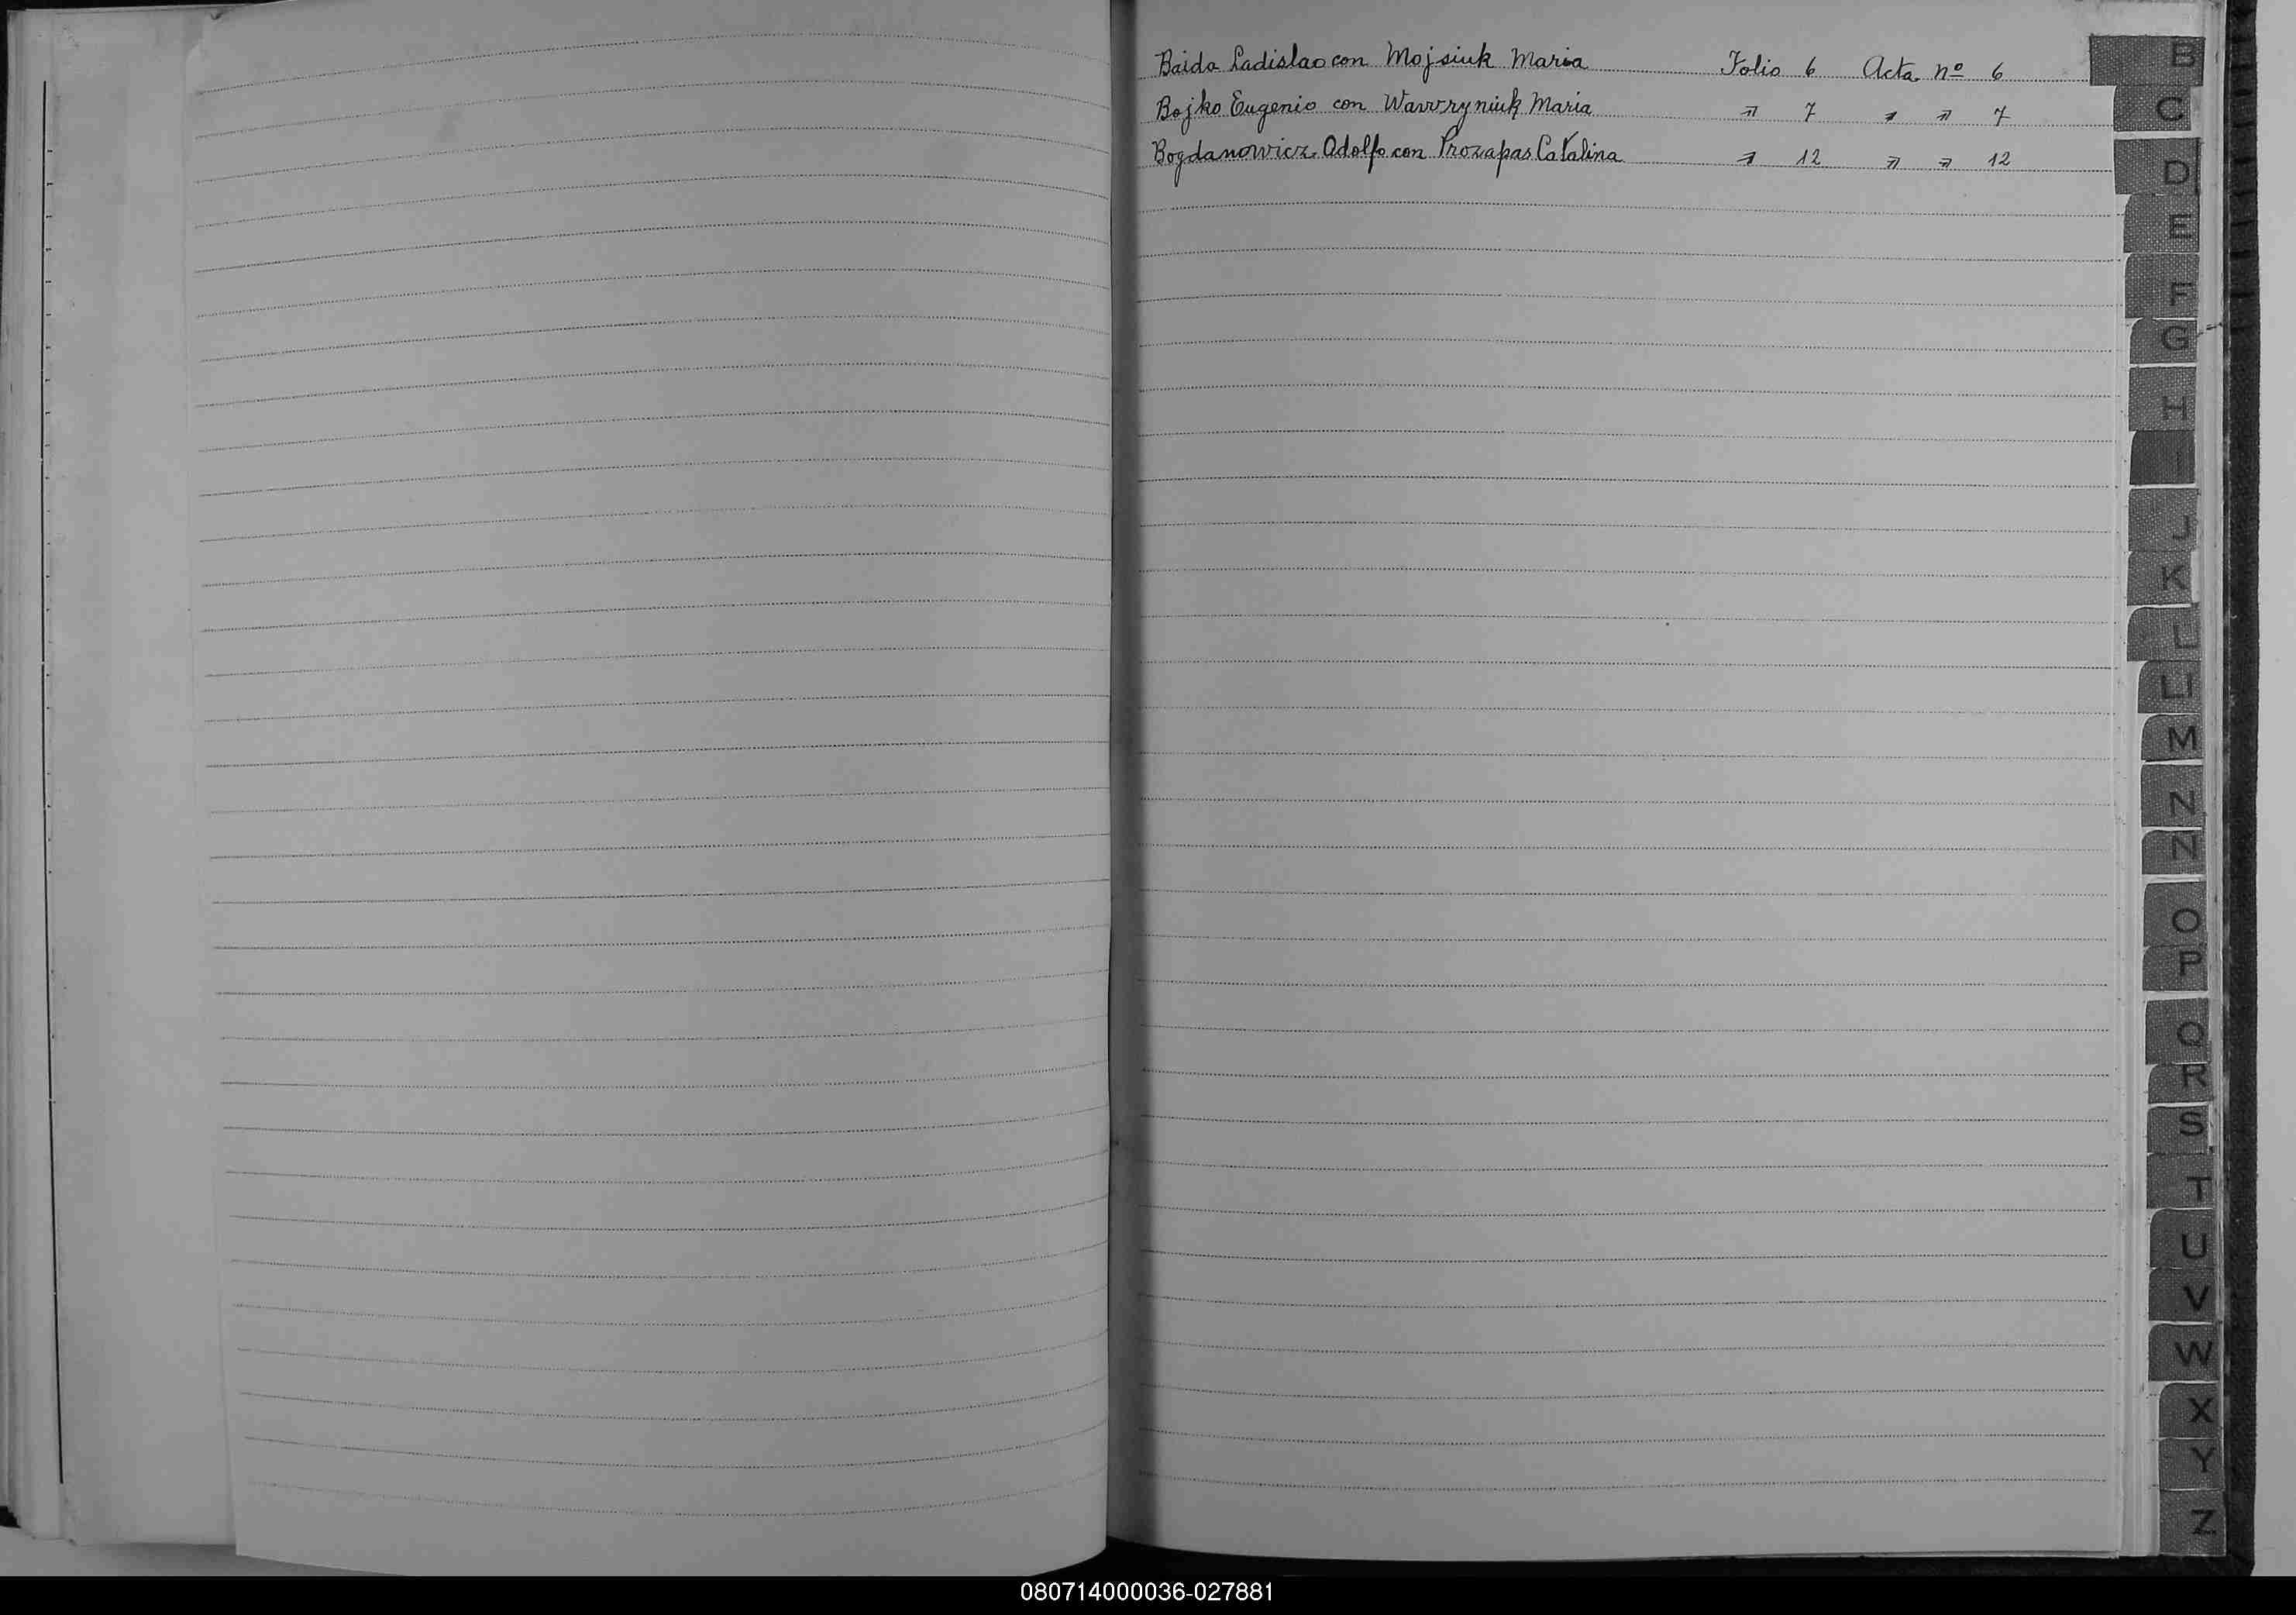 Baida Ladislao con Mojsiuk Maria Folio 6 Acta nº 6
Bojko Eugenio con Wawryniuk Maria " 7 " " 7
Bogdanowicz Adolfo con Prozapas Catalina " 12 " " 12
B
C
D
E
F
G
H
I
J
K
L
LL
M
N
Ñ
O
P
Q
R
S
T
U
V
W
X
Y
Z
080714000036-027881